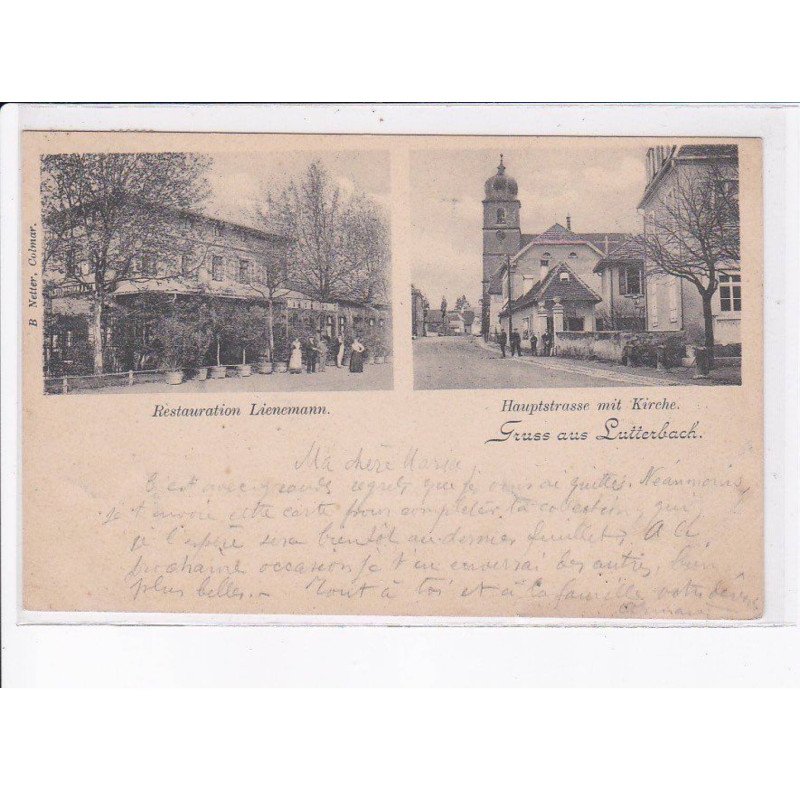 B Netter, Colmar.
Restauration Lienemann.
Hauptstrasse mit Kirche.
Gruss aus Lutterbach.
Ma chère Maria
C'est avec grands regrets que je vous ai quittés. Néanmoins
je t'envoie cette carte pour compléter ta collection, qui
je l'espère sera bientôt au dernier feuillet. A la
prochaine occasion je t'en enverrai des autres, bien
plus belles.- Tout à toi et à ta famille votre